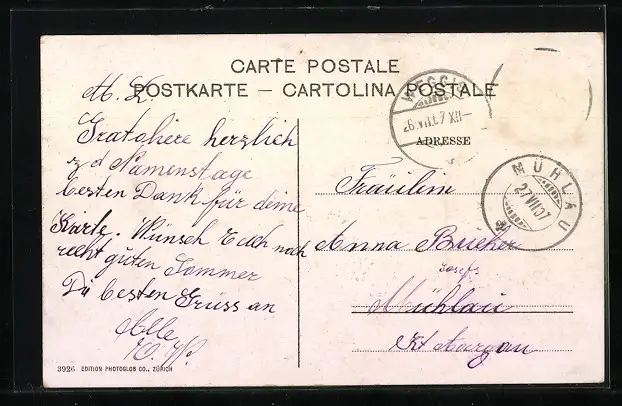 CARTE POSTALE
POSTKARTE – CARTOLINA POSTALE
M. L.
Gratuliere herzlich
z d Namenstage
besten Dank für deine
Karte. Wünsch Euch noch
recht guten Sommer
Die besten Grüss an
Alle
WEGGIS
26.VII.07.XII–
ADRESSE
MÜHLAU
27.VII.07
Fräulein
Anna Bucher
Josefs
Mühlau
Kt Aargau
3926 EDITION PHOTOGLOB CO., ZÜRICH